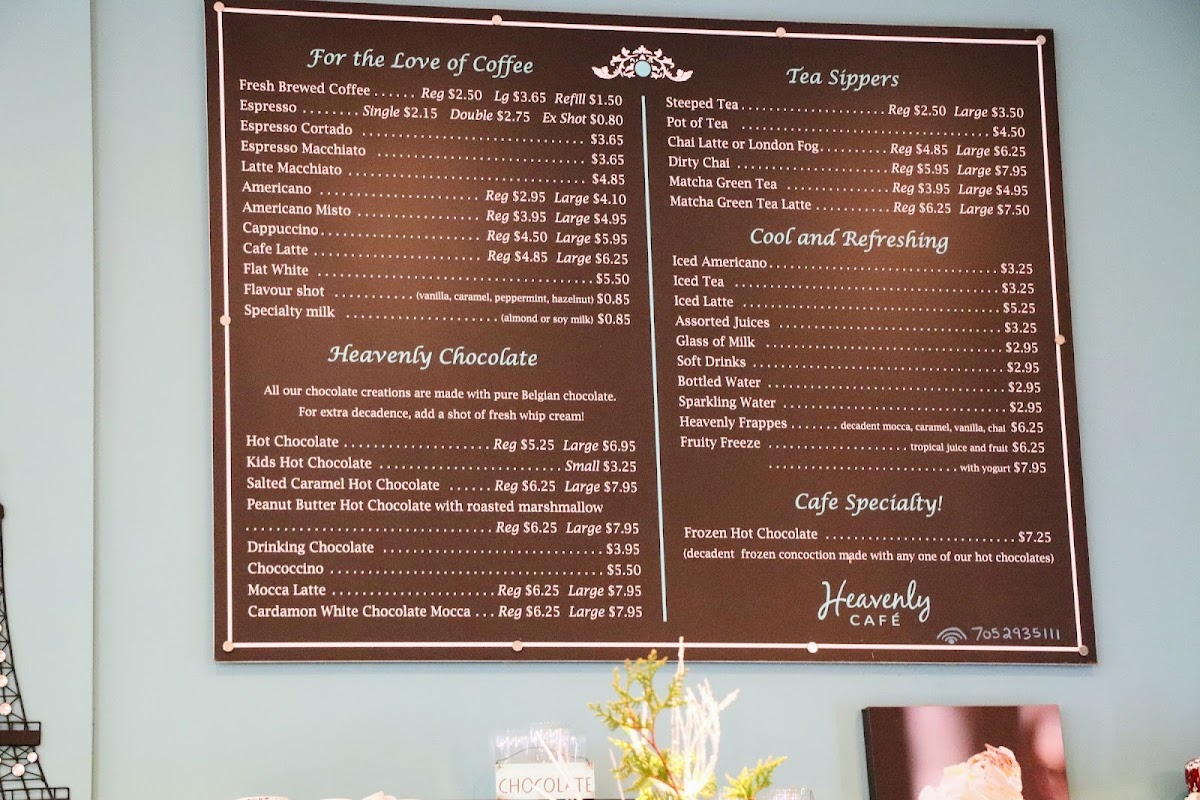 For the Love of Coffee
Fresh Brewed Coffee ...... Reg $2.50 Lg $3.65 Refill $1.50
Espresso ........ Single $2.15 Double $2.75 Ex Shot $0.80
Espresso Cortado ........ $3.65
Espresso Macchiato ........ $3.65
Latte Macchiato ........ $4.85
Americano ........ Reg $2.95 Large $4.10
Americano Misto ........ Reg $3.95 Large $4.95
Cappuccino ........ Reg $4.50 Large $5.95
Cafe Latte ........ Reg $4.85 Large $6.25
Flat White ........ $5.50
Flavour shot ........ (vanilla, caramel, peppermint, hazelnut) $0.85
Specialty milk ........ (almond or soy milk) $0.85
Heavenly Chocolate
All our chocolate creations are made with pure Belgian chocolate.
For extra decadence, add a shot of fresh whip cream!
Hot Chocolate ........ Reg $5.25 Large $6.95
Kids Hot Chocolate ........ Small $3.25
Salted Caramel Hot Chocolate ...... Reg $6.25 Large $7.95
Peanut Butter Hot Chocolate with roasted marshmallow
........ Reg $6.25 Large $7.95
Drinking Chocolate ........ $3.95
Chococcino ........ $5.50
Mocca Latte ........ Reg $6.25 Large $7.95
Cardamon White Chocolate Mocca ... Reg $6.25 Large $7.95
Tea Sippers
Steeped Tea ........ Reg $2.50 Large $3.50
Pot of Tea ........ $4.50
Chai Latte or London Fog ........ Reg $4.85 Large $6.25
Dirty Chai ........ Reg $5.95 Large $7.95
Matcha Green Tea ........ Reg $3.95 Large $4.95
Matcha Green Tea Latte ........ Reg $6.25 Large $7.50
Cool and Refreshing
Iced Americano ........ $3.25
Iced Tea ........ $3.25
Iced Latte ........ $5.25
Assorted Juices ........ $3.25
Glass of Milk ........ $2.95
Soft Drinks ........ $2.95
Bottled Water ........ $2.95
Sparkling Water ........ $2.95
Heavenly Frappes ....... decadent mocca, caramel, vanilla, chai $6.25
Fruity Freeze ........ tropical juice and fruit $6.25
........ with yogurt $7.95
Cafe Specialty!
Frozen Hot Chocolate ........ $7.25
(decadent frozen concoction made with any one of our hot chocolates)
Heavenly
CAFÉ
7052935111
CHOCOLATE